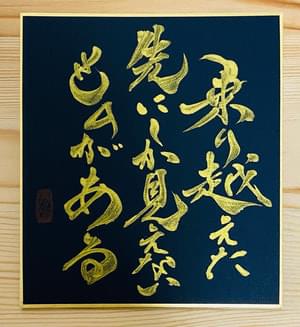 乗り越えた
先にしか見えない
ものがある